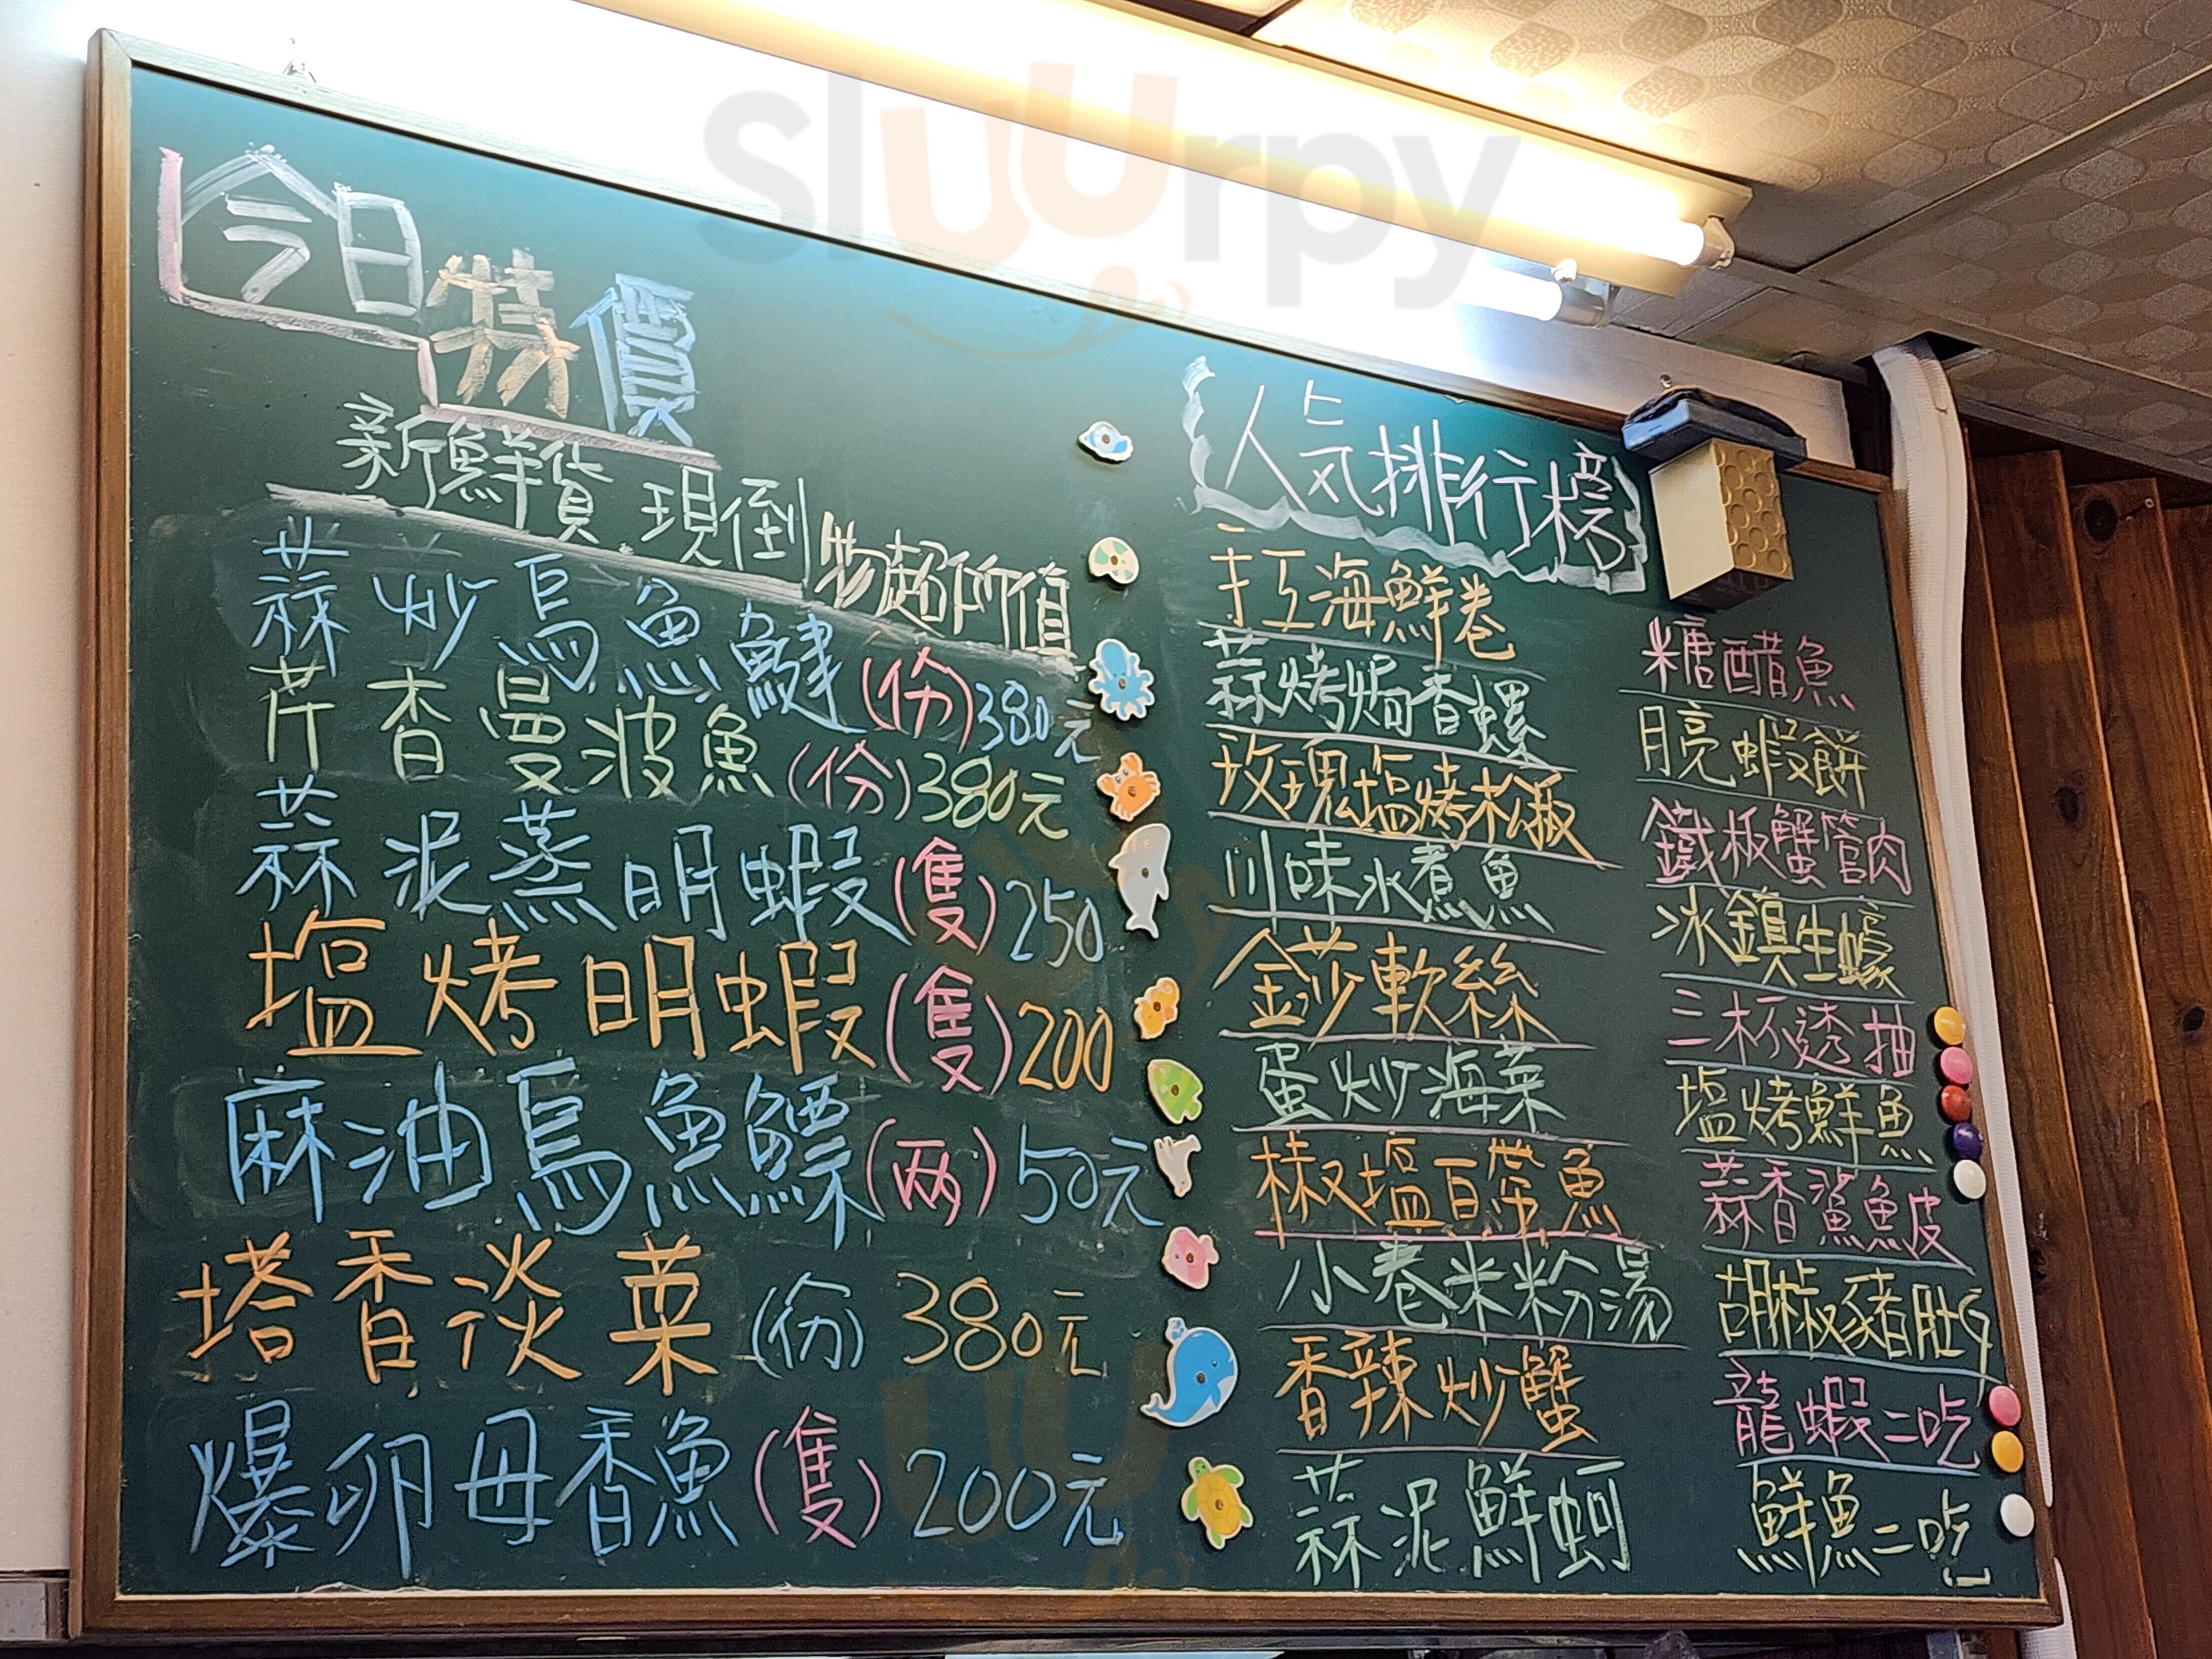 sluurpy
今日特價
新鮮貨 現倒 物超所值
蒜炒烏魚鰎(份)380元
芹香曼波魚(份)380元
蒜泥蒸明蝦(隻)250
塩烤明蝦(隻)200
麻油烏魚鰾(两)50元
塔香淡菜(份)380元
爆卵母香魚(隻)200元
人気排行榜
手工海鮮卷
蒜烤焗香螺
玫瑰塩烤松板
川味水煮魚
金莎軟絲
蛋炒海菜
椒塩百帶魚
小卷米粉湯
香辣炒蟹
蒜泥鮮蚵
糖醋魚
月亮蝦餅
鐵板蟹管肉
冰鎮生蠔
三杯透抽
塩烤鮮魚
蒜香鯊魚皮
胡椒豬肚
龍蝦二吃
鮮魚二吃